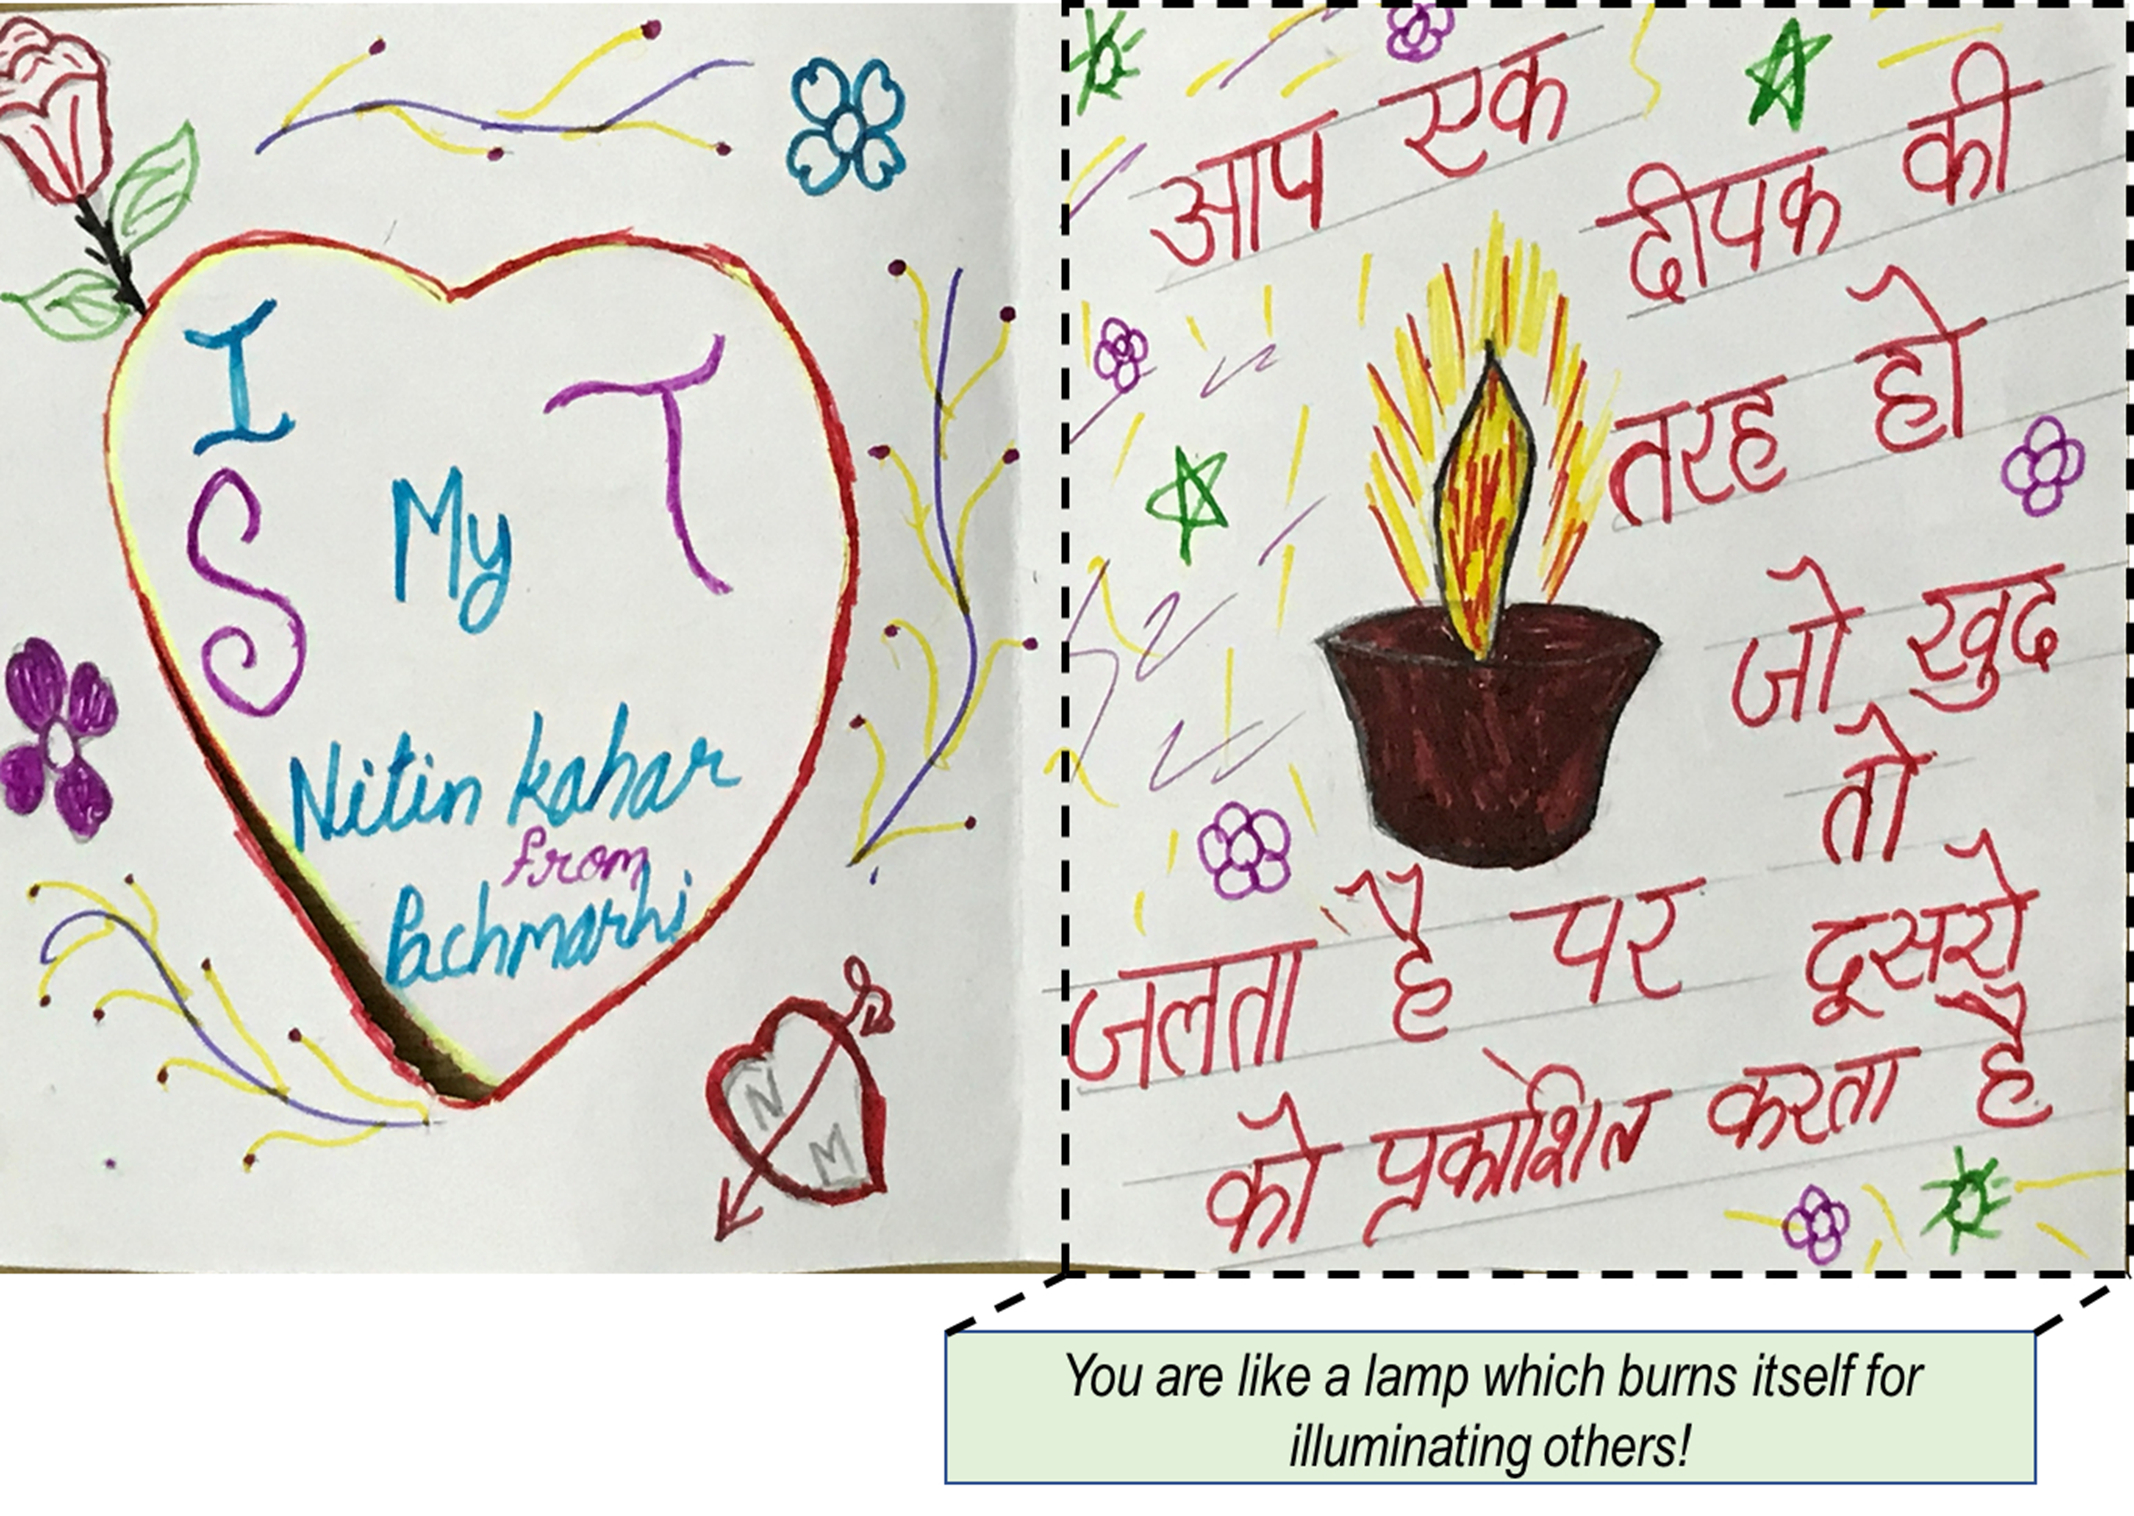 I
S
My
T
Nitin kahar
from
Pachmarhi
N
M
आप एक
दीपक की
तरह हो
जो खुद
तो
जलता है पर दूसरो
को प्रकाशित करता है
You are like a lamp which burns itself for
illuminating others!